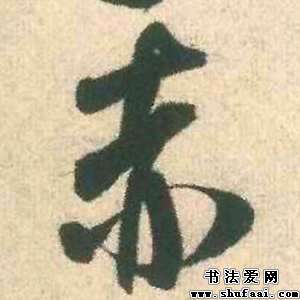 赤
书法爱网
www.shufaai.com